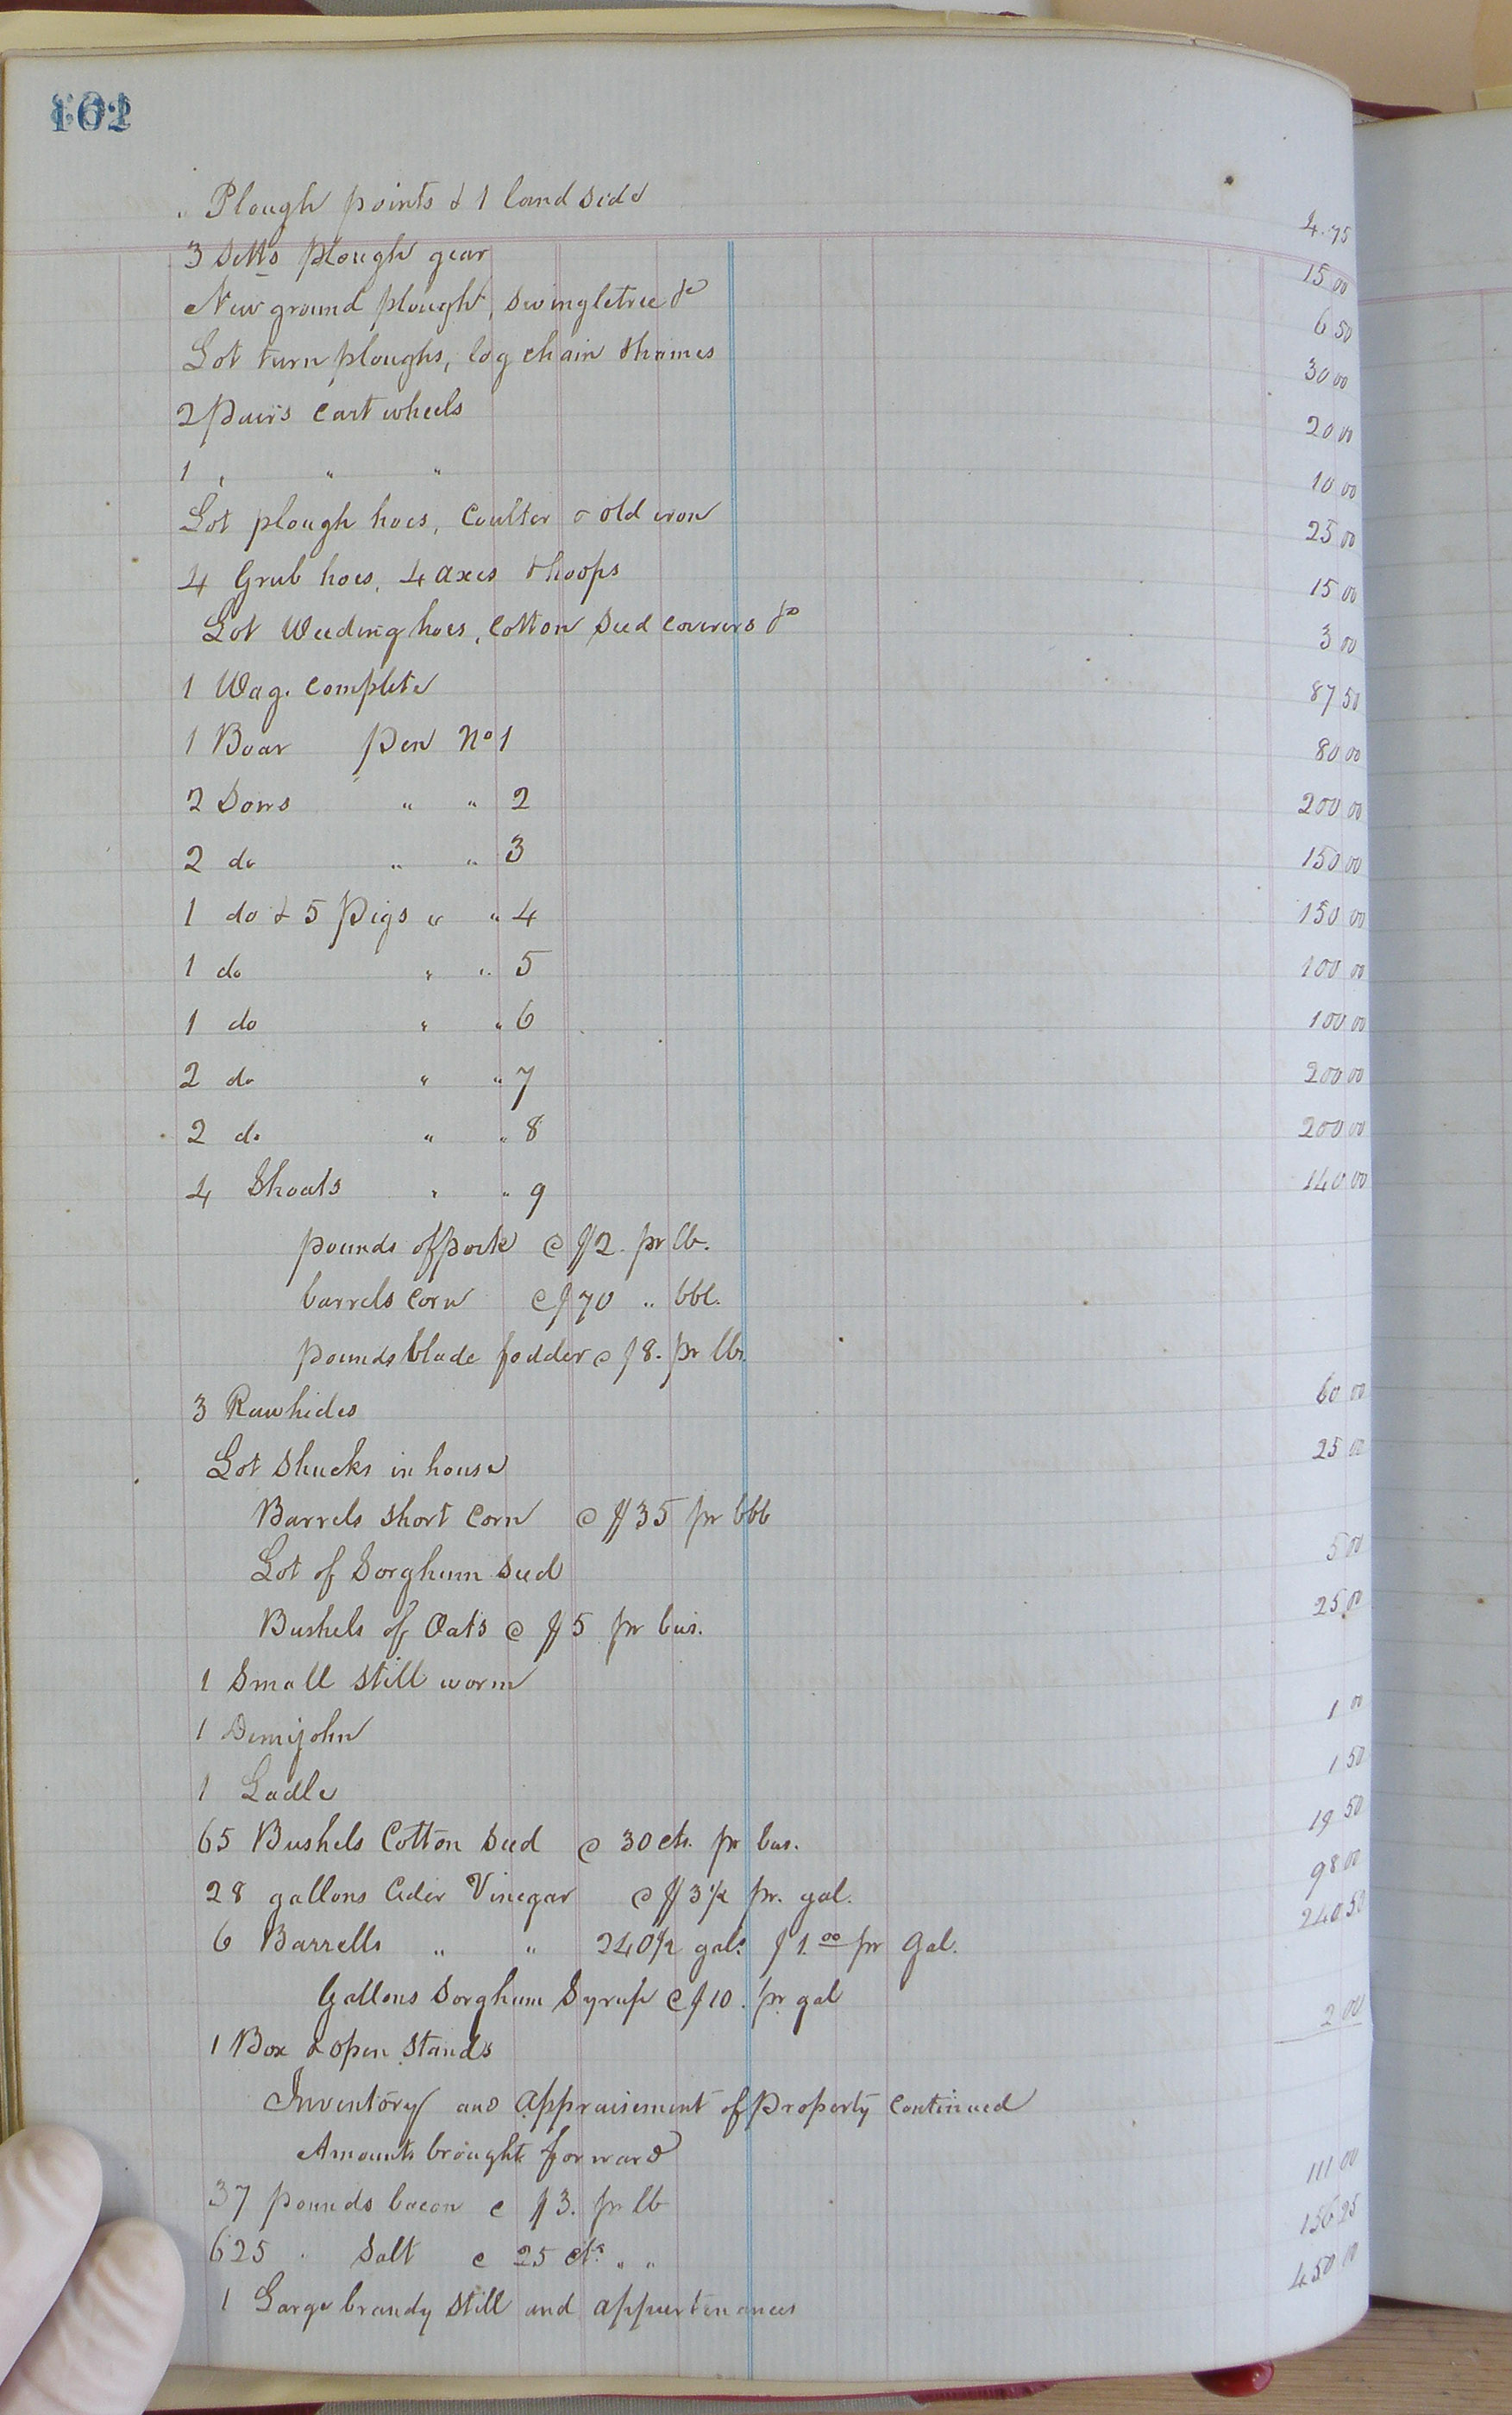 162
" Plough points & 1 land side 4.75
3 Setts plough gear 15 00
New ground plough, swingletree &c 6 50
Lot turn ploughs, log chain & hames 30 00
2 pairs Cart wheels 20 00
1 " " " 10 00
Lot plough hoes, Coulter & old iron 25 00
4 Grub hoes, 4 axes & hoops 15 00
Lot Weeding hoes, Cotton Seed coverers &c 3 00
1 Wag. Complete 87 50
1 Boar pen No 1 80 00
2 Sows " " 2 200 00
2 do " " 3 150 00
1 do & 5 pigs " " 4 150 00
1 do " " 5 100 00
1 do " " 6 100 00
2 do " " 7 200 00
2 do " " 8 200 00
4 Shoats " " 9 140 00
pounds of pork @ $2. pr lb.
barrels Corn @ $70 " bbl.
pounds blade fodder @ $8. pr lbs.
3 Rawhides 60 00
Lot Shucks in house 25 00
Barrels Short Corn @ $35 pr bbl
Lot of Sorghum Seed 5 00
Bushels of Oats @ $5 pr bus.
1 Small Still worm 25 00
1 Demijohn
1 Ladle 1 00
65 Bushels Cotton Seed @ 30 cts. pr bus. 19 50
28 gallons Cider Vinegar @ $3 1/2 pr. gal. 98 00
6 Barrells " " 240 1/2 gals $1.00 pr Gal. 240 50
Gallons Sorghum Syrup @ $10. pr gal
1 Box & open Stands 2 00
Inventory and Appraisement of Property Continued
Amounts brought forward
37 pounds bacon @ $3. pr lb 111 00
625 " Salt @ 25 cts " " 156 25
1 Large brandy Still and appurtenances 450 00